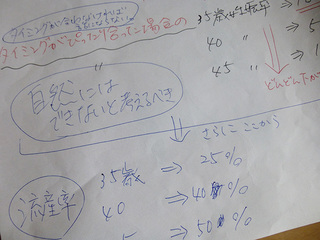 タイミングが合わなければ
タイミングがぴったり合った場合の
35歳 妊娠率 ⇒
40 〃 ⇒ 5
45 〃 ⇒ 1
どんどん下が
〃
自然には
できないと考えるべき
さらに ここから
流産率
35歳 ⇒ 25%
40 ⇒ 40%
5 ⇒ 50%